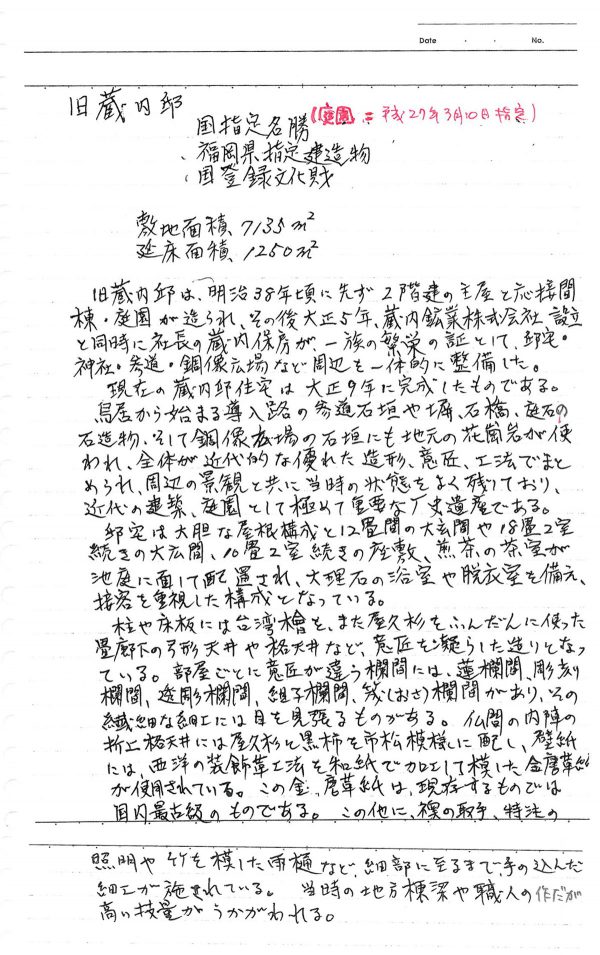 Date ・ ・ No.
旧蔵内邸
国指定名勝 (庭園 = 平成27年3月10日指定)
・福岡県指定建造物
・国登録文化財
敷地面積、7135m²
延床面積、1250m²
旧蔵内邸は、明治38年頃に先ず2階建の主屋と応接間
棟・庭園が造られ、その後大正5年、蔵内鉱業株式会社、設立
と同時に社長の蔵内保房が、一族の繁栄の証として、邸宅・
神社・参道・銅像広場など周辺を一体的に整備した。
現在の蔵内邸住宅は大正9年に完成したものである。
鳥居から始まる導入路の参道石垣や塀、石橋、庭石の
石造物、そして銅像広場の石垣にも地元の花崗岩が使
われ、全体が近代的な優れた造形、意匠、工法でまと
められ、周辺の景観と共に当時の状態をよく残しており、
近代の建築、庭園として極めて重要な歴史遺産である。
邸宅は大胆な屋根構成と12畳間の大玄関や18畳2室
続きの大広間、10畳2室続きの座敷、煎茶の茶室が
池庭に面して配置され、大理石の浴室や脱衣室を備え、
接客を重視した構成となっている。
柱や床板には台湾檜を、また屋久杉をふんだんに使った
畳廊下の弓形天井や格天井など、意匠を凝らした造りとなっ
ている。部屋ごとに意匠が違う欄間には、蓮欄間、彫刻
欄間、透彫欄間、組子欄間、筬(おさ)欄間があり、その
繊細な細工には目を見張るものがある。仏間の内陣の
折上格天井には屋久杉と黒柿を市松模様に配し、壁紙
には、西洋の装飾革工法を和紙で加工して模した金唐革紙
が使用されている。この金唐革紙は、現存するものでは
国内最古級のものである。この他に、襖の取手、特注の
照明や竹を模した雨樋など、細部に至るまで、手の込んだ
細工が施されている。当時の地方棟梁や職人の作だが
高い技量がうかがわれる。